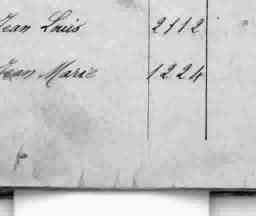 Jean Louis 2112
Jean Marie 1224